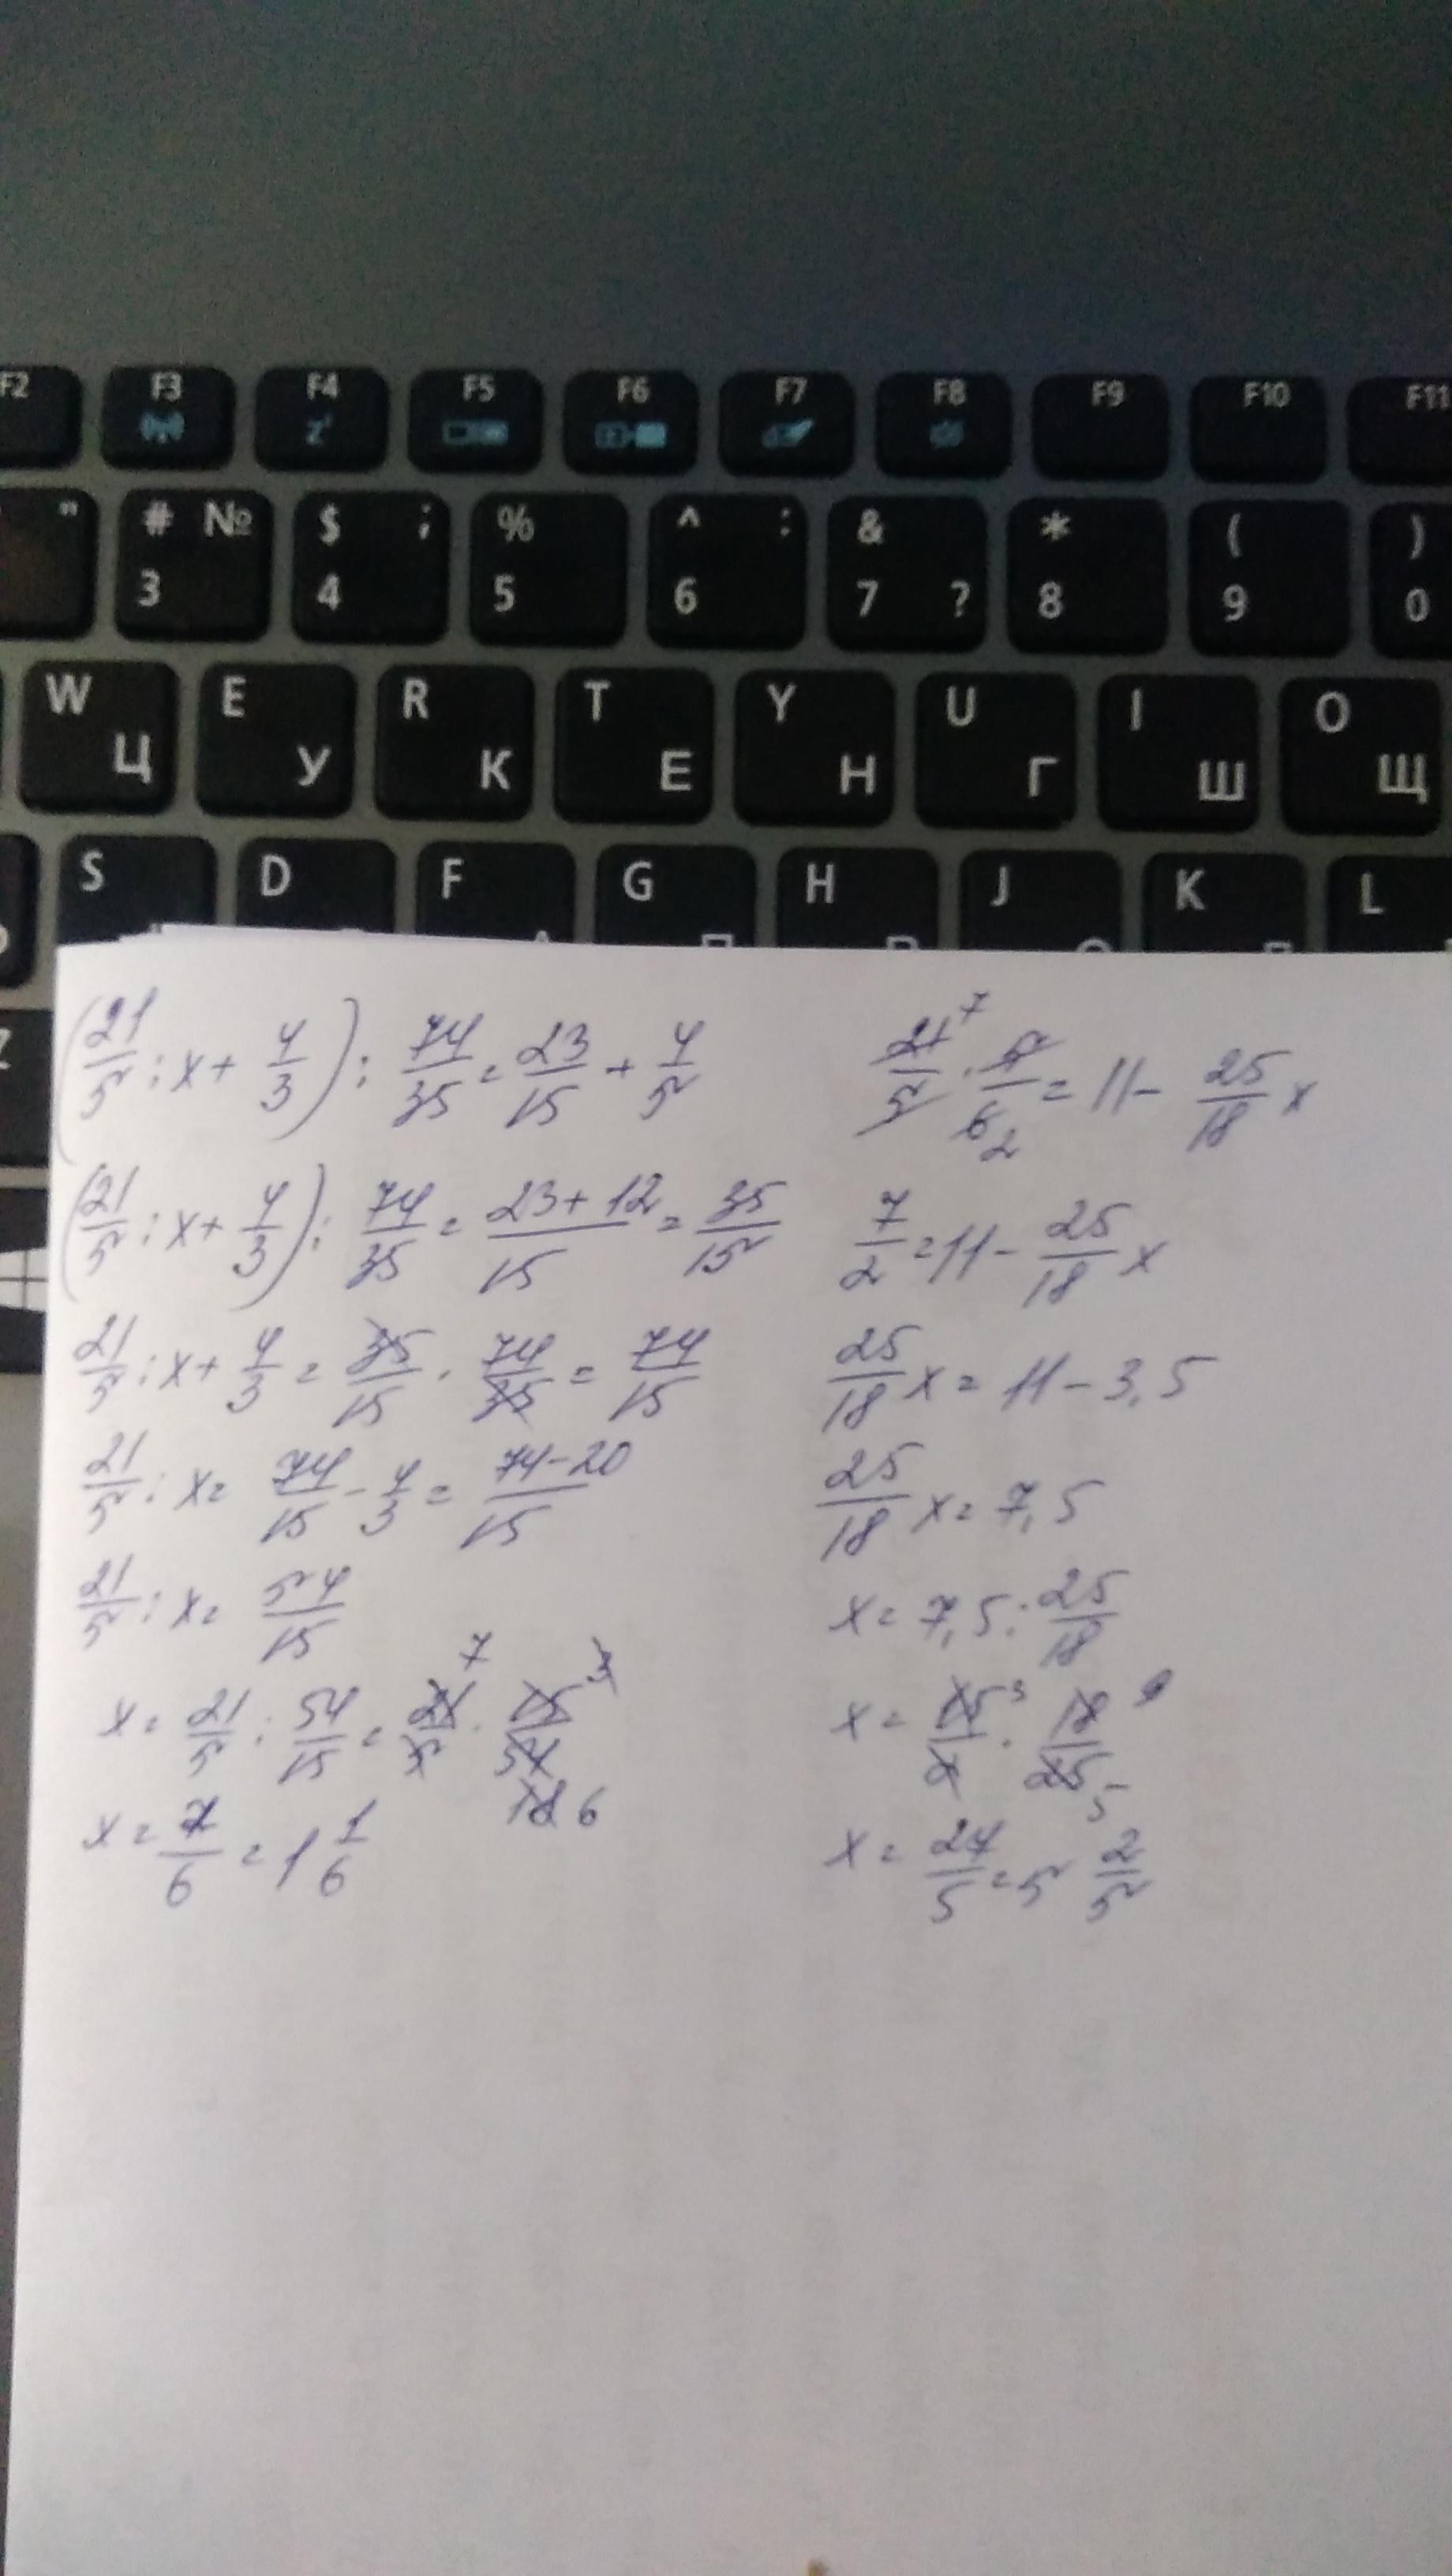 F2 F3 F4 F5 F6 F7 F8 F9 F10 F11
z
" # № $ ; % ^ : & * ( )
3 4 5 6 7 ? 8 9 0
W E R T Y U I O
Ц У К Е Н Г Ш Щ
S D F G H J K L
Z
(21/5 : x + 4/3) : 74/35 = 23/15 + 4/5
(21/5 : x + 4/3) : 74/35 = (23+12)/15 = 35/15
21/5 : x + 4/3 = 35/15 · 74/35 = 74/15
21/5 : x = 74/15 - 4/3 = (74-20)/15
21/5 : x = 54/15
7 3
x = 21/5 : 54/15 = 21/5 · 15/54
18 6
x = 7/6 = 1 1/6
7
21/5 · 5/6 = 11 - 25/18 x
2
7/2 = 11 - 25/18 x
25/18 x = 11 - 3,5
25/18 x = 7,5
x = 7,5 : 25/18
3 9
x = 15/2 · 18/25
5
x = 27/5 = 5 2/5